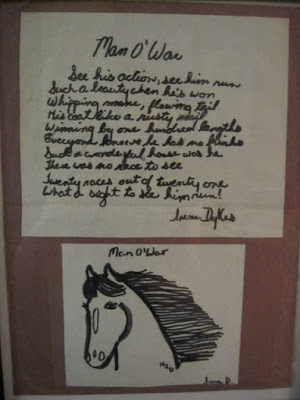 Man O'War
See his action, see him run
Such a beauty when he's won
Whipping mane, flowing tail
His coat like a rusty nail
Winning by one hundred lengths
Everyone knows he has no kinks
Such a wonderful horse was he
There was no race to see
Twenty races out of twenty one
What a sight to see him run!
Irene Dykes
Man O'War
Irene D.